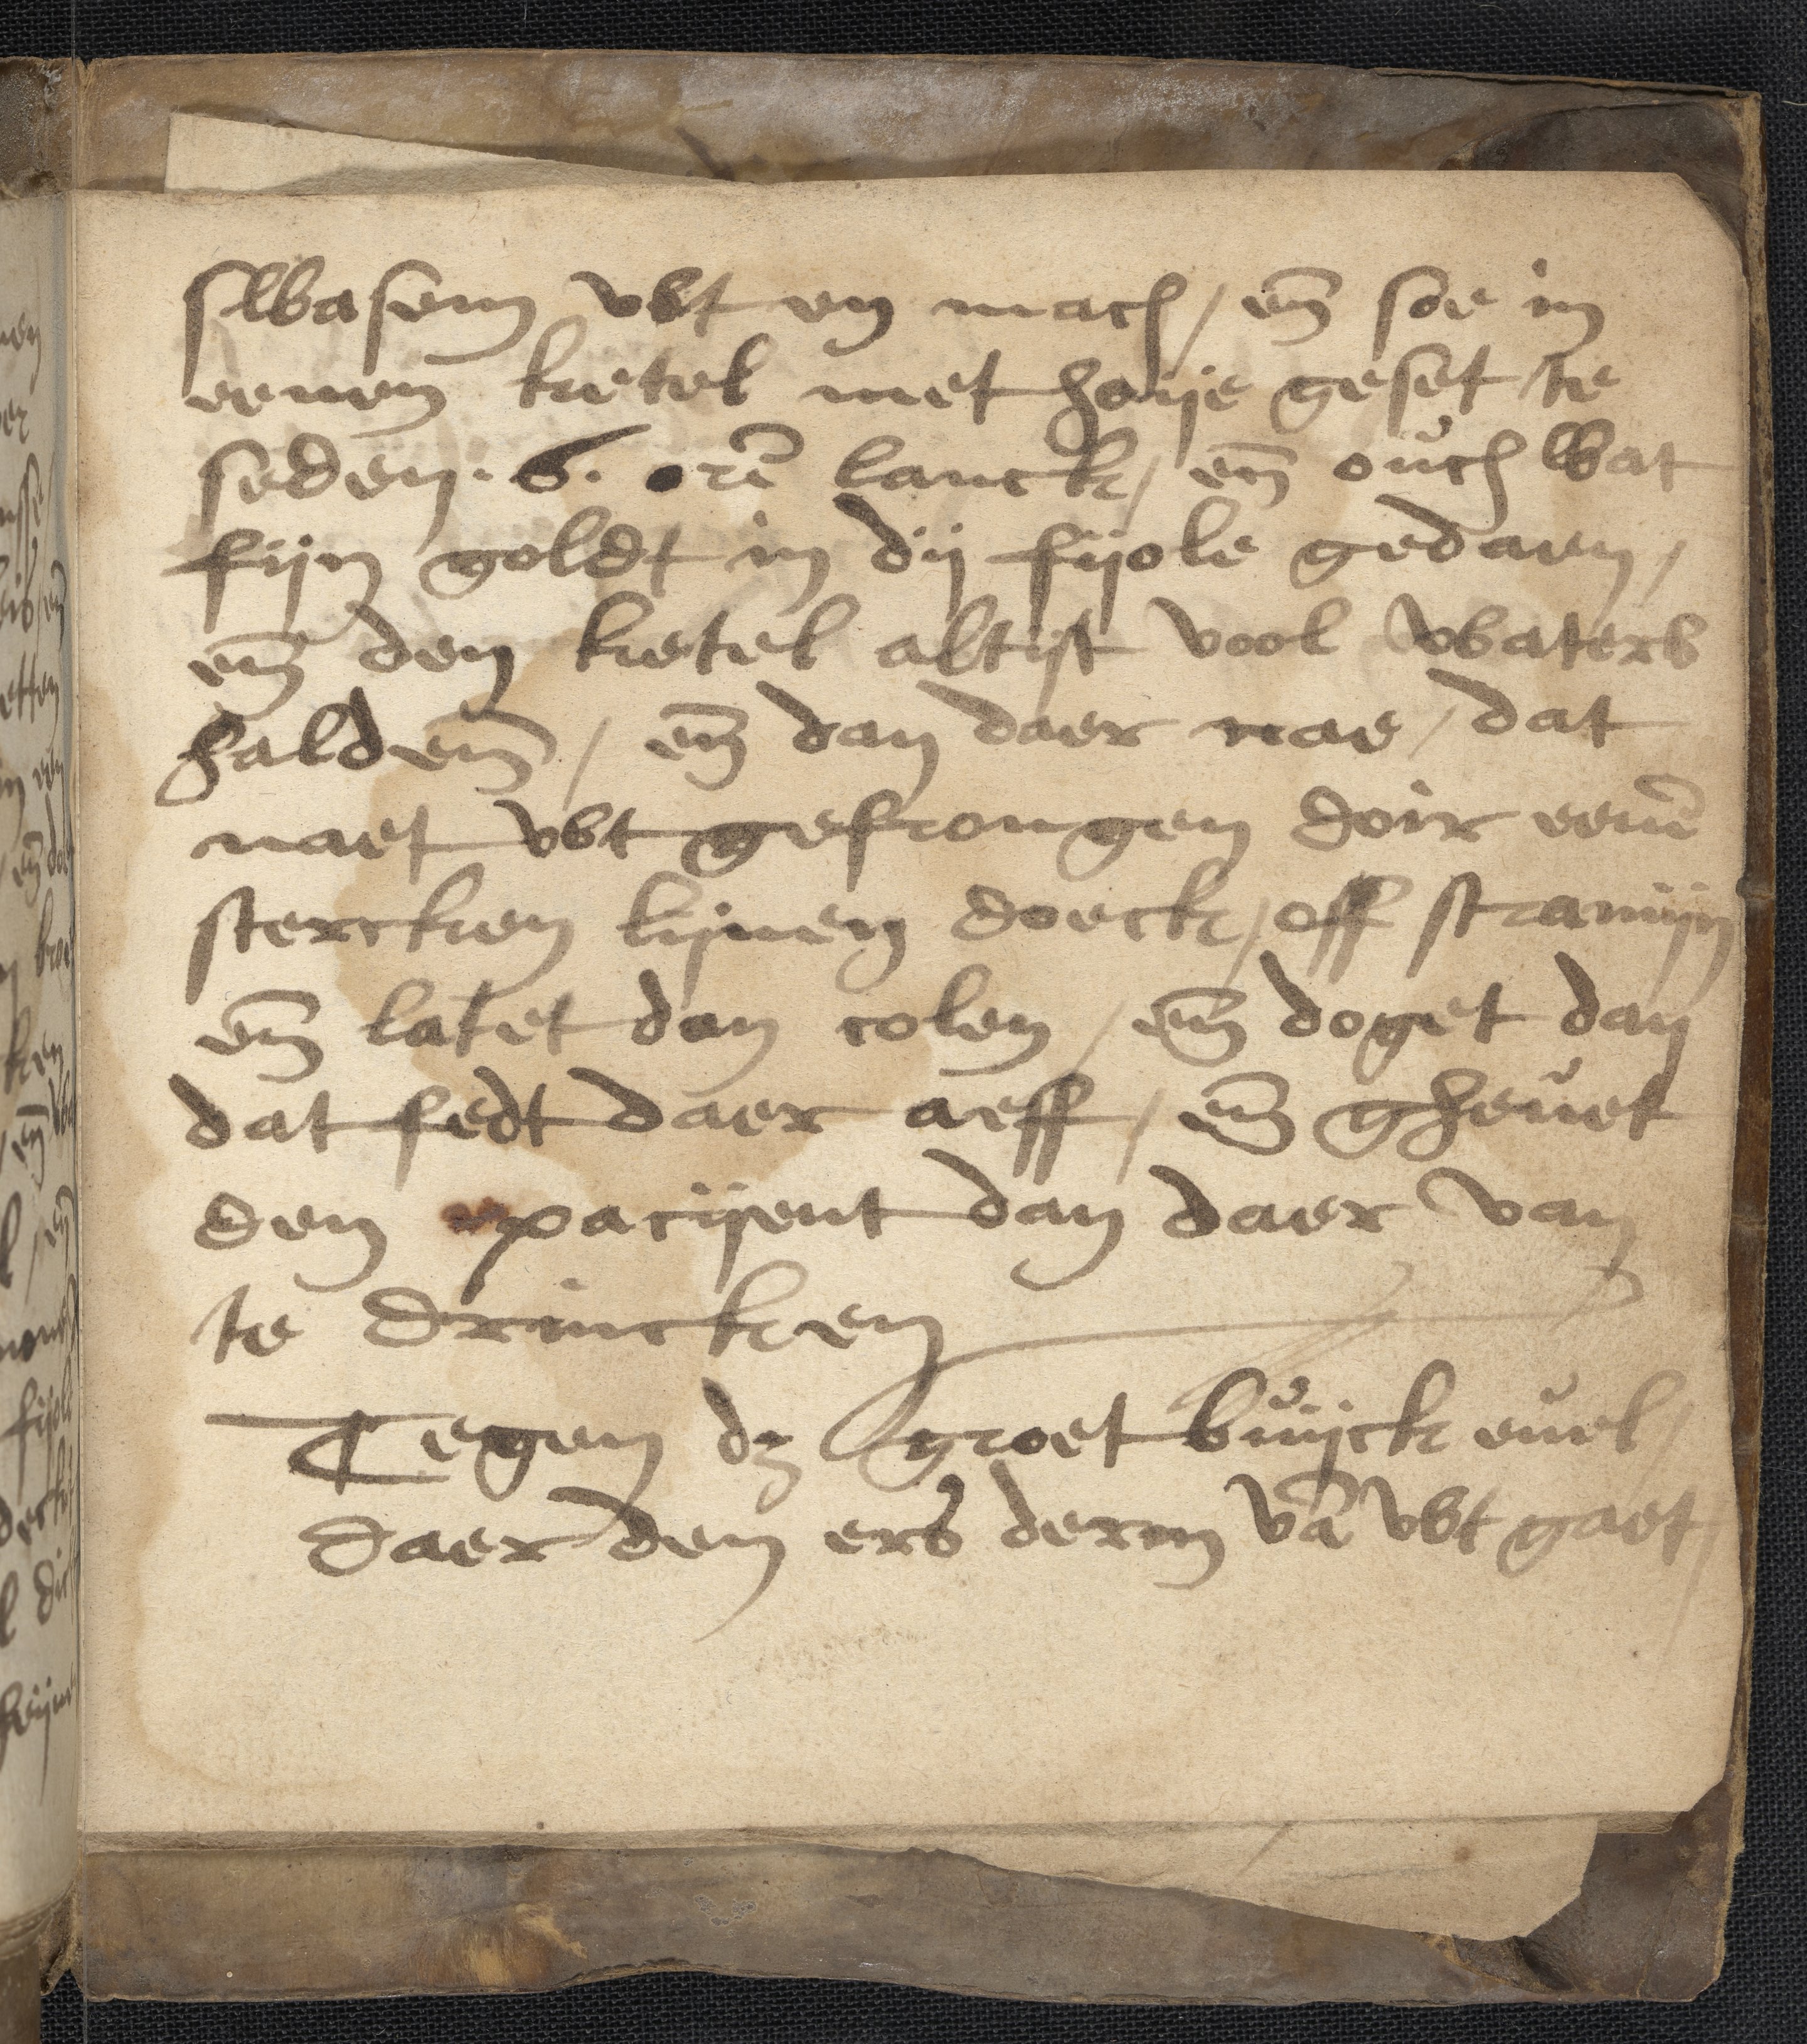 slwasem vwt en mach / en̄ soe in
eenen ketel met hoije geset te
seden . 6. orē lanck / en̄ oŭch wat
fijn goldt in dij fijole gedaen /
en̄ den ketel altijt vool waters
halden̄ / en̄ dan daer nae / dat
naet vwt gefrongen doir eenē
stercken lijnen doeck / off stramijn
en̄ latet dan colen / en̄ doget dan
dat fedt daer aeff / en̄ gheŭet
den pacijent dan daer van
te drincken
Tegen dz groet bŭijck eŭel /
daer den ers derm vā vwt gaet /